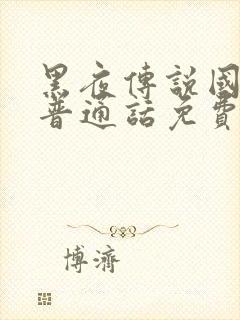 黑夜傳說國
普通話免費
博濟